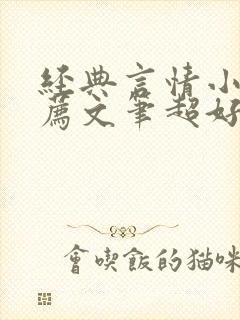 經典言情小
薦文筆超好
會喫飯的猫咪